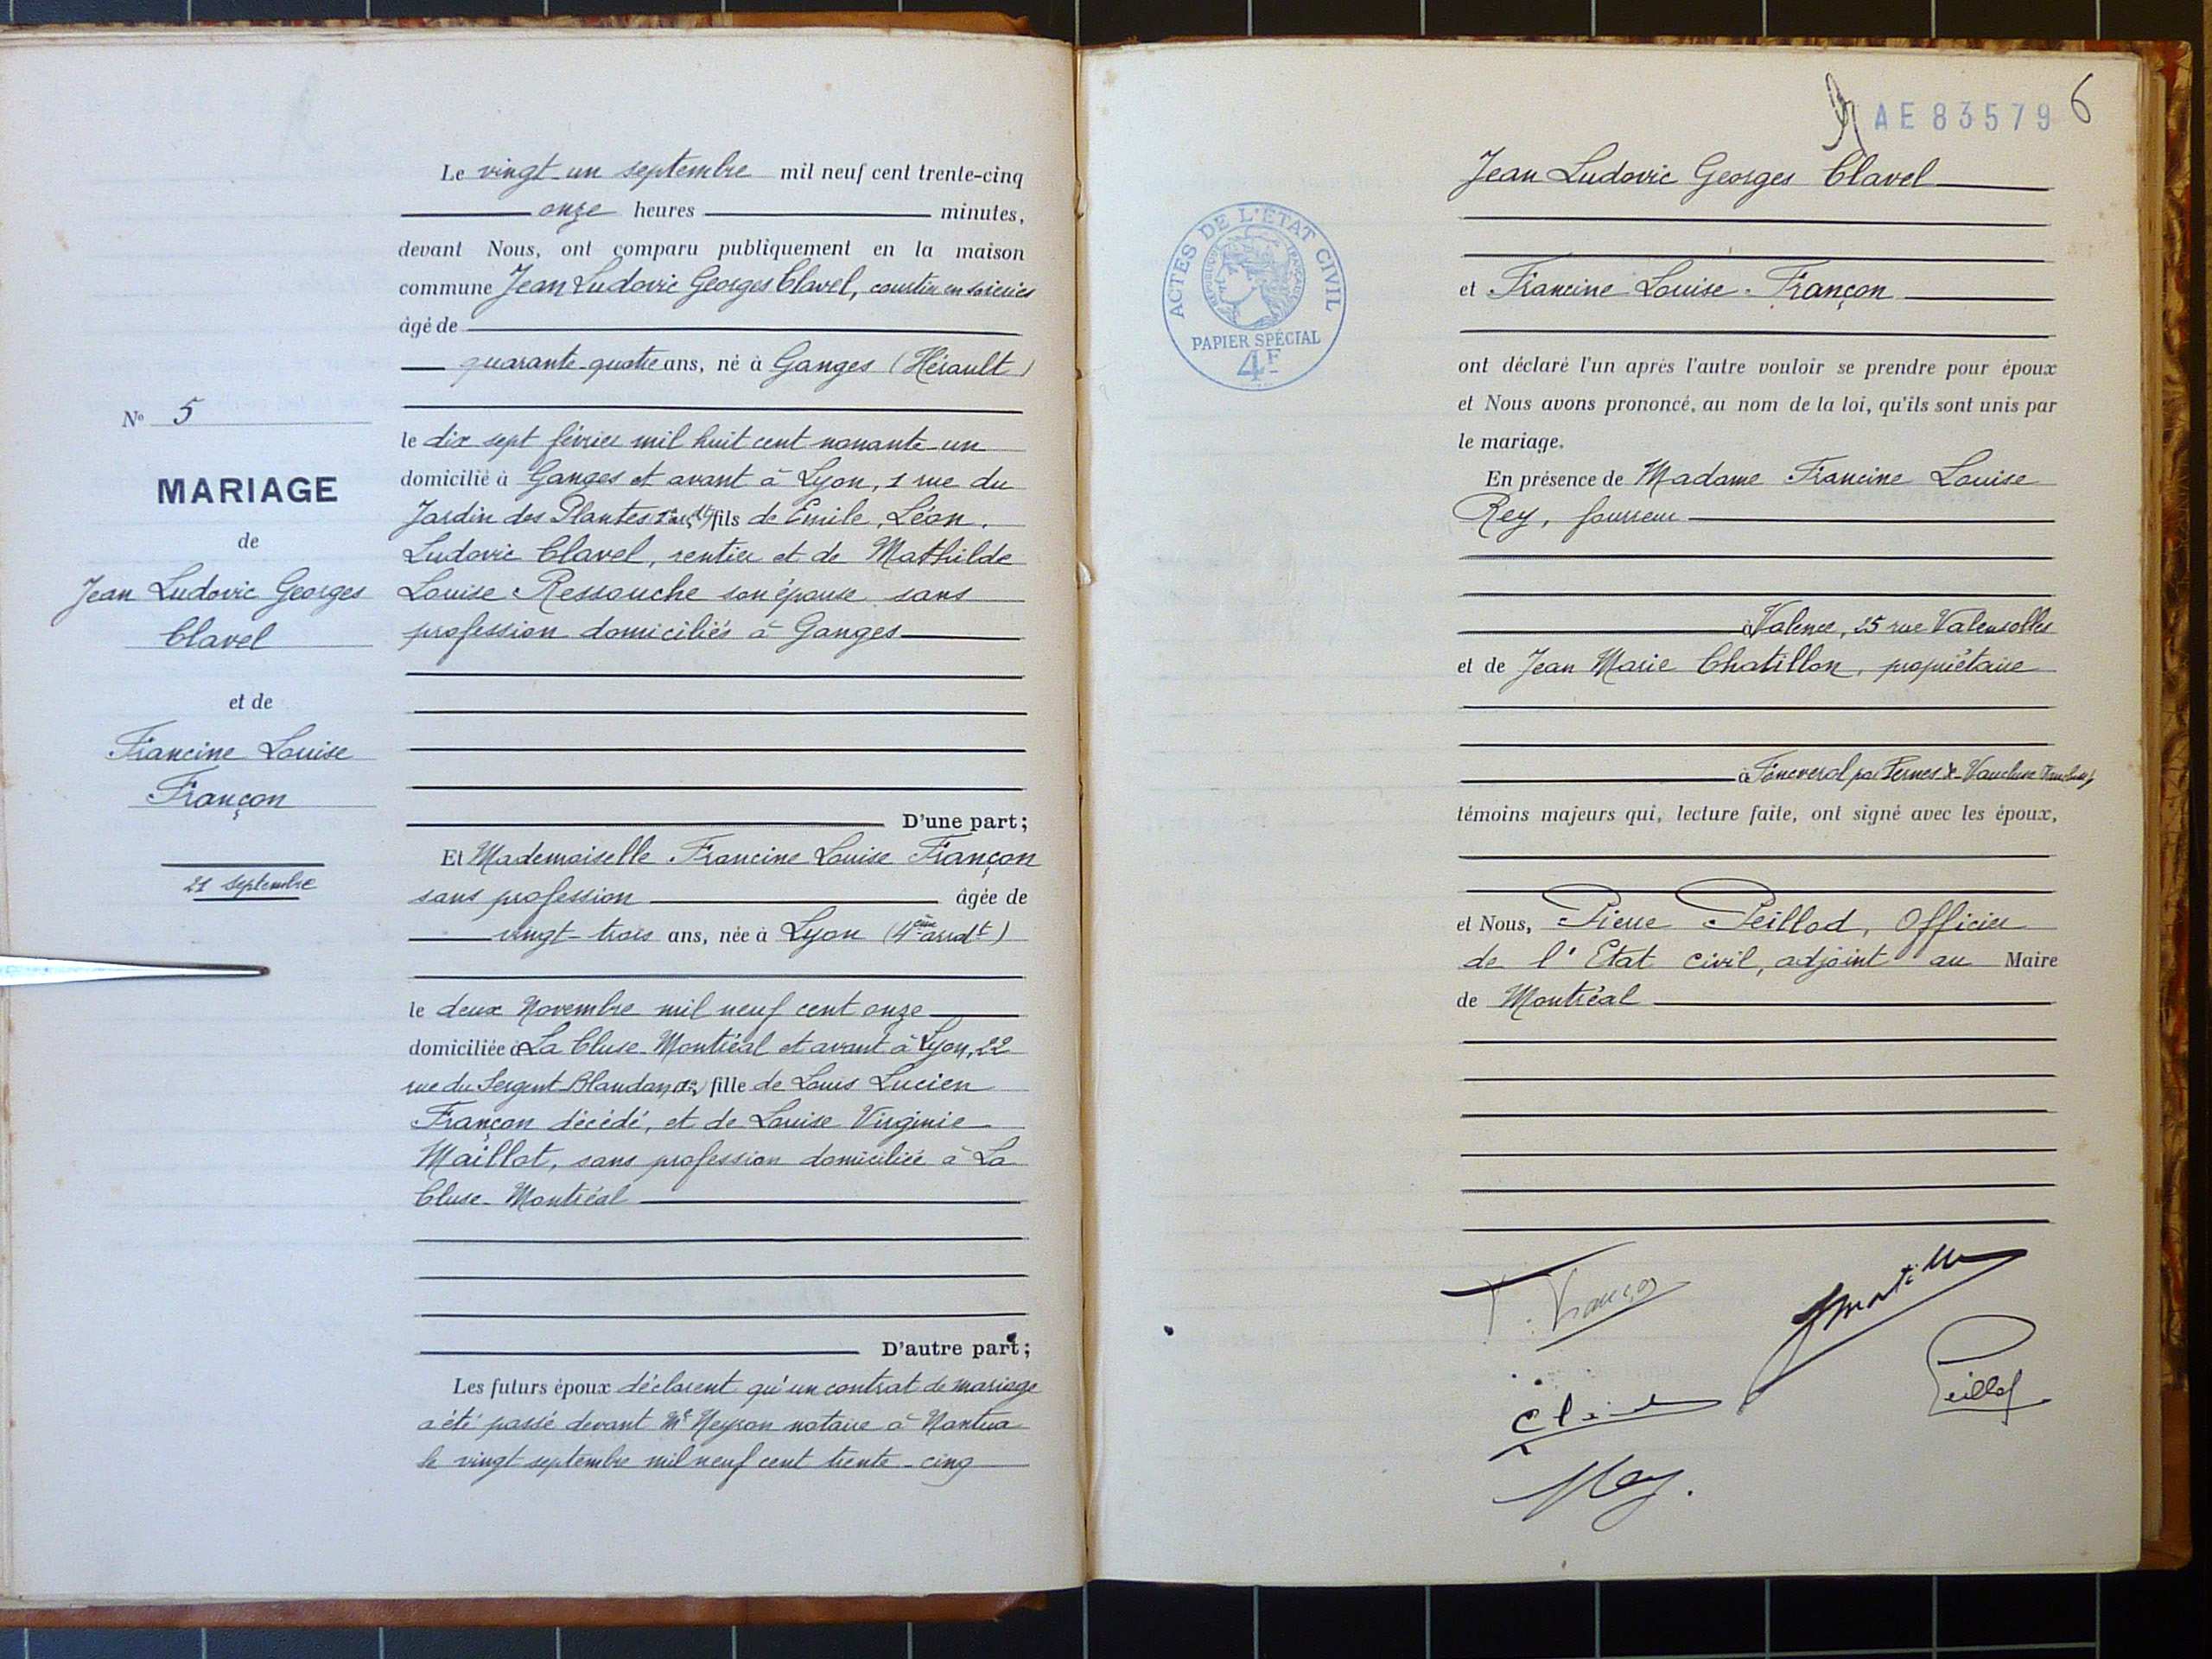 Le vingt-un septembre mil neuf cent trente-cinq
onze heures minutes,
devant Nous, ont comparu publiquement en la maison
commune Jean Ludovic Georges Clavel, courtier en soieries
âgé de
quarante-quatre ans, né à Ganges (Hérault)
le dix sept février mil huit cent nonante-un
domicilié à Ganges et avant à Lyon, 1 rue du
Jardin des Plantes fils de Emile, Léon,
Ludovic Clavel, rentier et de Mathilde
Louise Ressouche son épouse sans
profession domiciliés à Ganges
D'une part;
Nº 5
MARIAGE
de
Jean Ludovic Georges
Clavel
et de
Francine Louise
Françon
21 septembre
Et Mademoiselle Francine Louise Françon
sans profession âgée de
vingt-trois ans, née à Lyon (4ème arrdt)
le deux Novembre mil neuf cent onze
domiciliée à La Cluse-Montréal et avant à Lyon, 22
rue du Sergent Blandan, fille de Louis Lucien
Françon décédé, et de Louise Virginie
Maillot, sans profession domiciliée à La
Cluse-Montréal
D'autre part;
Les futurs époux déclarent qu'un contrat de mariage
a été passé devant Me Neyron notaire à Nantua
le vingt septembre mil neuf cent trente-cinq
AE 83579 6
Jean Ludovic Georges Clavel
ACTES DE L'ETAT CIVIL
REPUBLIQUE FRANÇAISE
PAPIER SPÉCIAL
4F
et Francine Louise Françon
ont déclaré l'un après l'autre vouloir se prendre pour époux
et Nous avons prononcé, au nom de la loi, qu'ils sont unis par
le mariage.
En présence de Madame Francine Louise
Rey, fourreur
à Valence, 25 rue Valensolles
et de Jean Marie Chatillon, propriétaire
à par Pernes Vaucluse
témoins majeurs qui, lecture faite, ont signé avec les époux,
et Nous, Pierre Peillod, Officier
de l'Etat civil, adjoint au Maire
de Montréal
F. Françon
Peillod
Rey.